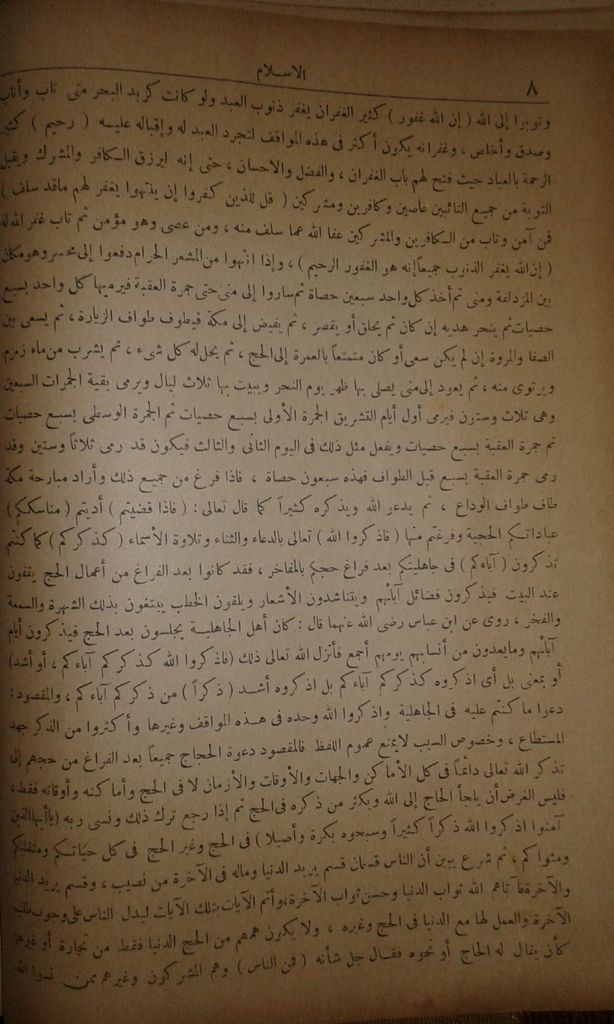 الاسلام
٨
وتوبوا إلى الله ( إن الله غفور ) كثير الغفران يغفر ذنوب العبد ولو كانت كزبد البحر متى تاب وأناب
وصدق وأخلص ، وغفرانه يكون أكثر فى هذه المواقف لتجرد العبد له وإقباله عليه ( رحيم ) كثير
الرحمة بالعباد حيث فتح لهم باب الغفران ، والفضل والاحسان ، حتى إنه ليرزق الكافر والمشرك ويقبل
التوبة من جميع التائبين عاصين وكافرين ومشركين ( قل للذين كفروا إن ينتهوا يغفر لهم ماقد سلف )
فمن آمن وتاب من الكافرين والمشركين عفا الله عما سلف منه ، ومن عصى وهو مؤمن ثم تاب غفر الله له
( إن الله يغفر الذنوب جميعاً إنه هو الغفور الرحيم ) ، وإذا انتهوا من المشعر الحرام دفعوا إلى محسر وهو مكان
بين المزدلفة ومنى ثم أخذ كل واحد سبعين حصاة ثم ساروا إلى منى حتى جمرة العقبة فيرميها كل واحد بسبع
حصيات ثم ينحر هديه إن كان ثم يحلق أو يقصر ، ثم يفيض إلى مكة فيطوف طواف الزيارة ، ثم يسعى بين
الصفا والمروة إن لم يكن سعى أو كان متمتعاً بالعمرة إلى الحج ، ثم يحل له كل شىء ، ثم يشرب من ماء زمزم
ويرتوى منه ، ثم يعود إلى منى يصلى بها ظهر يوم النحر ويبيت بها ثلاث ليال ويرمى بقية الجمرات السبعين
وهى ثلاث وستون فيرمى أول أيام التشريق الجمرة الأولى بسبع حصيات ثم الجمرة الوسطى بسبع حصيات
ثم جمرة العقبة بسبع حصيات ويفعل مثل ذلك فى اليوم الثانى والثالث فيكون قد رمى ثلاثاً وستين وقد
رمى جمرة العقبة بسبع قبل الطواف فهذه سبعون حصاة ، فاذا فرغ من جميع ذلك وأراد مبارحة مكة
طاف طواف الوداع ، ثم يدعو الله ويذكره كثيراً كما قال تعالى : ( فاذا قضيتم ) أديتم ( مناسككم )
عباداتكم الحجية وفرغتم منها ( فاذكروا الله ) تعالى بالدعاء والثناء وتلاوة الأسماء ( كذكركم ) كما كنتم
تذكرون ( آباءكم ) فى جاهليتكم بعد فراغ حجكم بالمفاخر ، فقد كانوا بعد الفراغ من أعمال الحج يقفون
عند البيت فيذكرون فضائل آبائهم ويتناشدون الأشعار ويلقون الخطب يبتغون بذلك الشهرة والسمعة
والفخر ، روى عن ابن عباس رضى الله عنهما قال : كان أهل الجاهلية يجلسون بعد الحج فيذكرون أيام
آبائهم ومايعدون من أنسابهم يومهم أجمع فأنزل الله تعالى ذلك ( فاذكروا الله كذكركم آباءكم ، أو أشد )
أو بمعنى بل أى اذكروه كذكركم آباءكم بل اذكروه أشد ( ذكراً ) من ذكركم آباءكم ، والمقصود :
دعوا ما كنتم عليه فى الجاهلية واذكروا الله وحده فى هذه المواقف وغيرها وأكثروا من الذكر جهد
المستطاع ، وخصوص السبب لايمنع عموم اللفظ فالمقصود دعوة الحجاج جميعاً بعد الفراغ من حجهم إلى
تذكر الله تعالى دائماً فى كل الأماكن والجهات والأوقات والأزمان لا فى الحج وأماكنه وأوقاته فقط ،
فليس الغرض أن يلجأ الحاج إلى الله ويكثر من ذكره فى الحج ثم إذا رجع ترك ذلك ونسى ربه ( ياأيها الذين
آمنوا اذكروا الله ذكراً كثيراً وسبحوه بكرة وأصيلا ) فى الحج وغير الحج فى كل حياتكم ومتقلبكم
ومثواكم ، ثم شرع يبين أن الناس قسمان قسم يريد الدنيا وماله فى الآخرة من نصيب ، وقسم يريد الدنيا
والآخرة فآتاهم الله ثواب الدنيا وحسن ثواب الآخرة ، وأتم الآيات بتلك الآيات ليدل الناس على وجوب طلب
الآخرة والعمل لها مع الدنيا فى الحج وغيره ، ولا يكون همهم من الحج الدنيا فقط من تجارة أو غيرها
كأن يقال له الحاج أو نحوه فقال جل شأنه ( فمن الناس ) وهم المشركون وغيرهم ممن نسوا الله